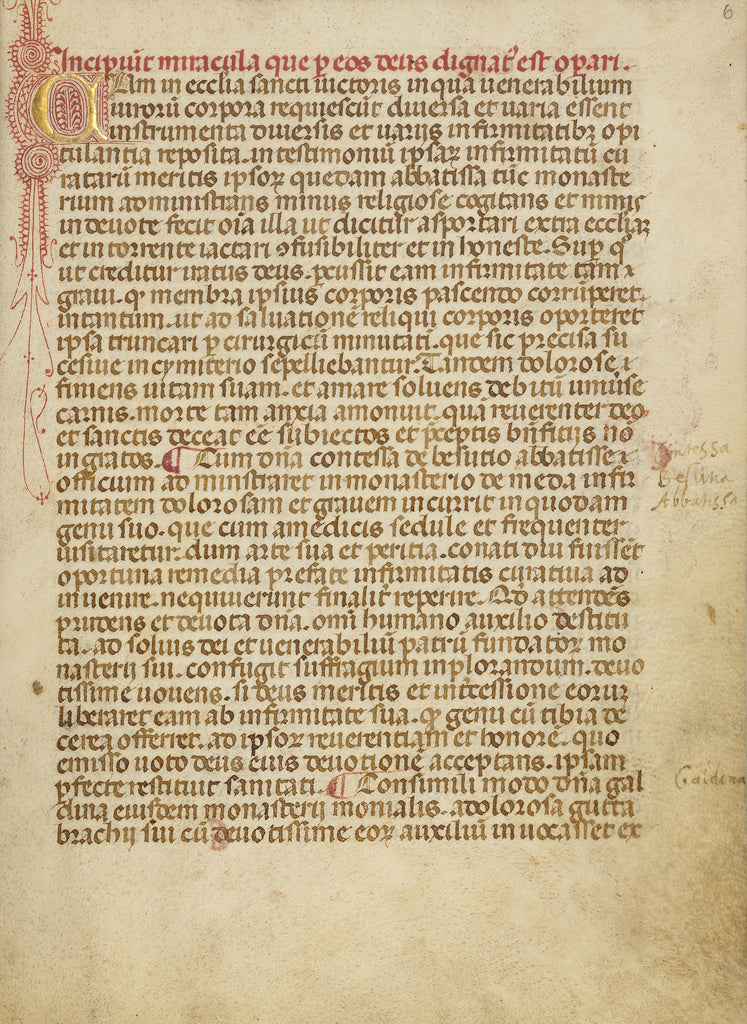 6
Incipiūt miracula que p̄ eos deus dignat᷒ est op̄ari.
Cum in ecclīa sancti uictoris in qua uenerabilium
uirorū corpora requiescūt diuersa et uaria essent
instrumenta diuersis et uariis infirmitatibꝫ opi
tulantia reposita. in testimoniū ip̄saꝝ infirmitatū cu
ratarū meritis ip̄soꝝ quedam abbatissa tūc monaste
rium administrans minus religiose cogitans et minus
in deuote fecit oīa illa ut dicitur asportari extra ecclīaꝫ
et in torrente iactari ꝯfusibiliter et in honeste. Sup̄ qͦ
ut creditur iratus deus. p̄cussit eam infirmitate tam
graui. qͥ membra ip̄sius corporis pascendo corrūperet.
intantum. ut ad saluationē reliqui corporis oporteret
ip̄sa truncari p̄ cirurgicū minutati. que sic precisa su
cesiue in cymiterio sepelliebantur. Tandem dolorose
finiens uitam suam. et amare soluens debitū uniuꝰse
carnis. morte tam anxia amonuit. quā reuerenter deo
et sanctis deceat eē subiectos et p̄ceptis bn̄ficijs nō
ingratos. ¶ Cum dn̄a contessa de besutio abbatisse
officium administraret in monasterio de meda infir
mitatem dolorosam et grauem incurrit in quodam
genu suo. que cum a medicis sedule et frequenter
uisitaretur. dum arte sua et peritia. conati diu fuissēt
oportuna remedia prefate infirmitatis curatiua ad
inuenire. nequiuerunt finalit̄ reperire. Qd̄ attendēs
prudens et deuota dn̄a. omī humano auxilio destitu
ta. ad soliuis dei et uenerabiliū patrū fundatoꝝ mo
nasterij sui. confugit suffragium inplorandum. deuo
tissime uouens. si deus meritis et int̄cessione eorum
liberaret eam ab infirmitate sua. qͥ genu cū tibia de
cerea offerret. ad ip̄soꝝ reuerentiam et honorē. quo
emisso uoto deus eius deuotionē acceptans. ip̄sam
p̄fecte restituit sanitati. ¶ Consimili modo dn̄a gal
dina eiusdem monasterij monialis. a dolorosa gutta
brachij sui cū deuotissime eoꝝ auxiliū inuocasset ex
Contessa
Besuna
Abbatissa
Gaidina